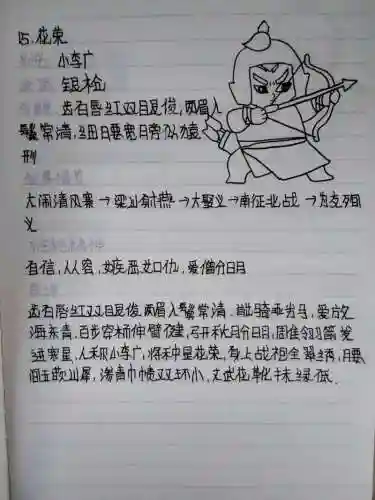 15.花荣
小李广
银枪
齿白唇红双目俊，两眉入
鬓常清，细腰宽膀似猿
形
大闹清风寨→梁山射燕→大聚义→南征北战→为友殉
义
有信，从容，嫉恶如仇，爱憎分明
齿白唇红双目俊，两眉入鬓常清，骑乖劣马，爱放
海东青，百步穿杨伸臂健，弓开秋月分明，雕翎箭发
迸寒星，人称小李广，将种是花荣，身上战袍金翠绣，腰
间玉嵌山犀，渗青巾帻双环小，文武花靴抹绿低．